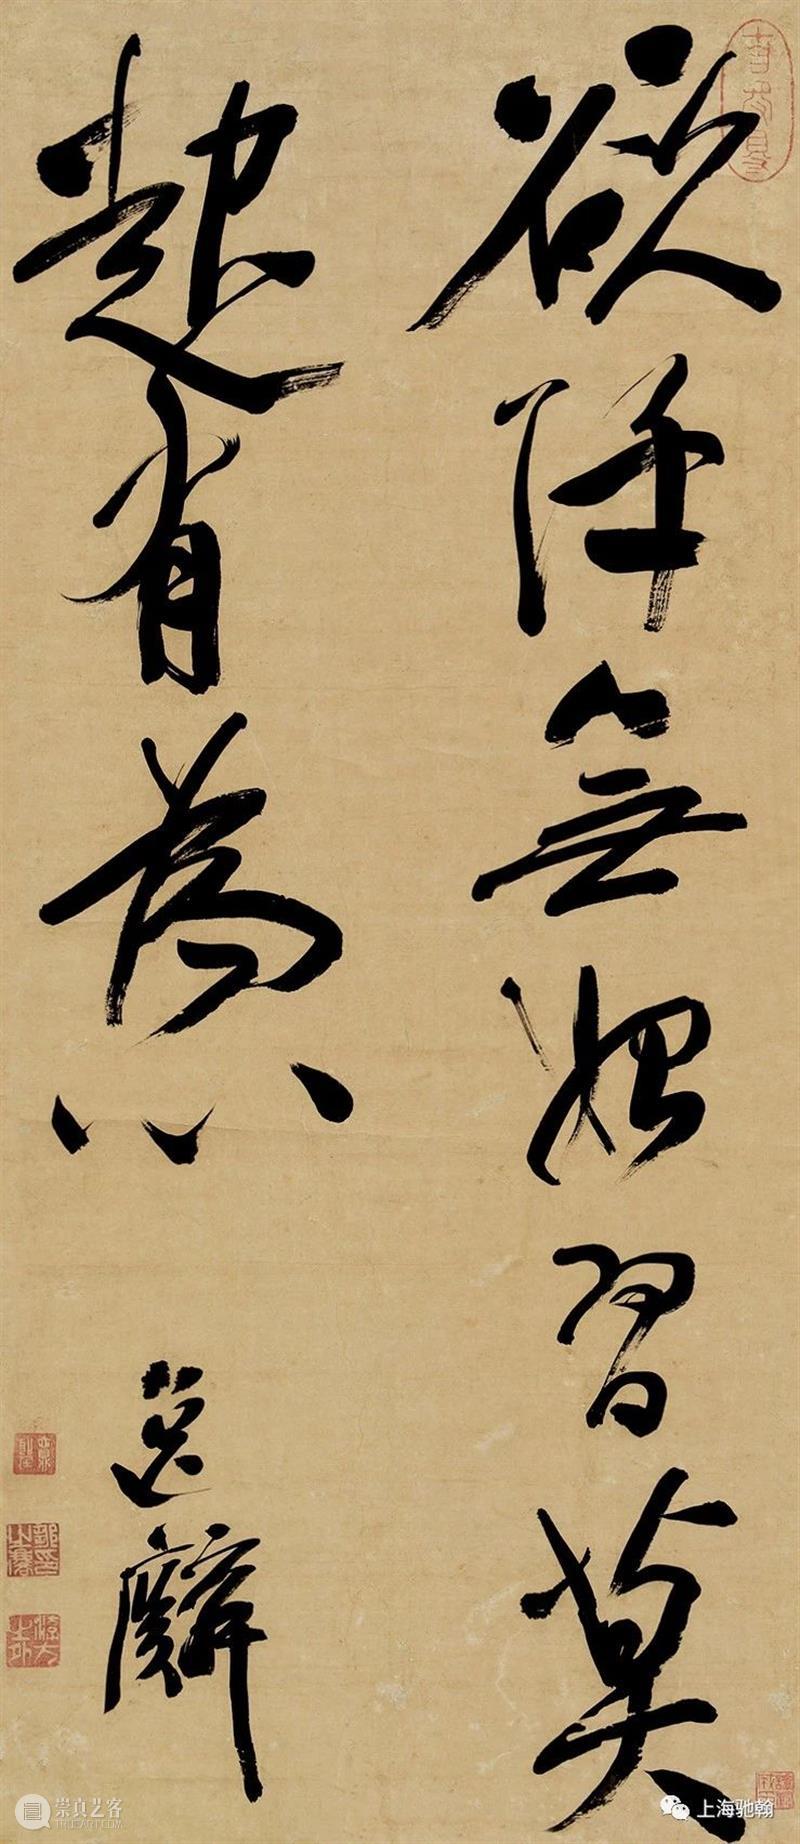 欲除無始習莫
起有為心
逸麟
崇真艺客
上海驰翰